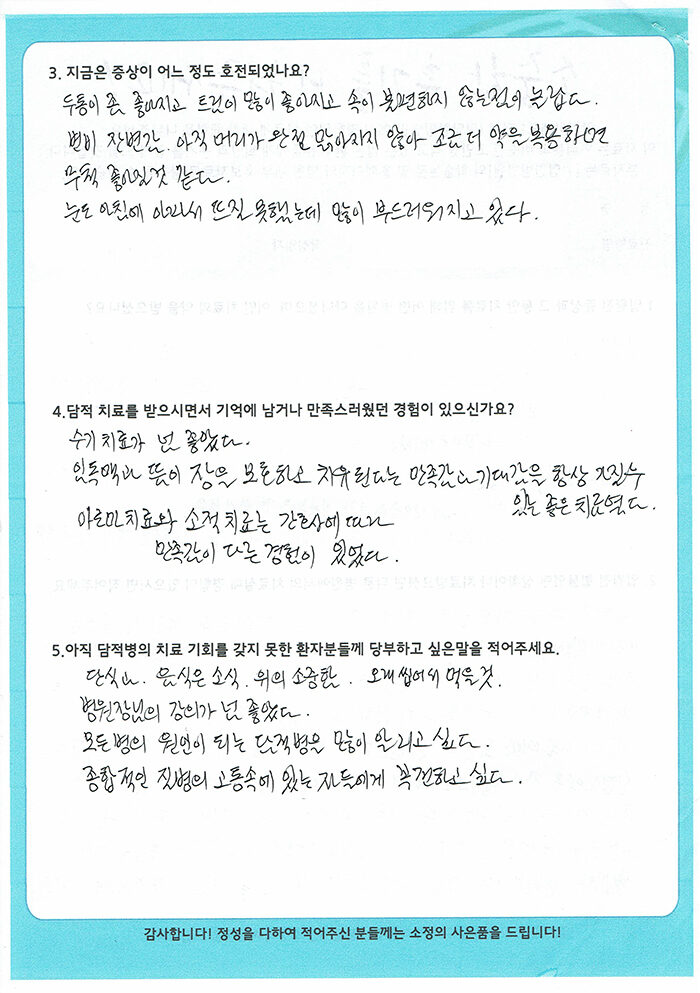 3. 지금은 증상이 어느 정도 호전되었나요?
두통이 좀 좋아지고 트림이 많이 좋아지고 속이 불편하지 않는점이 놀랍다.
변비 잔변감. 아직 머리가 완전 맑아지지 않아 조금 더 약을 복용하면
무척 좋아질것 같다.
눈도 아침에 아파서 뜨질 못했는데 많이 부드러워지고 있다.
4.담적 치료를 받으시면서 기억에 남거나 만족스러웠던 경험이 있으신가요?
수기치료가 넌 좋았다.
임독맥과 뜸이 장을 보호하고 치유된다는 만족감과 기대감을 항상 가질수
있는 좋은 치료였다.
아로마치료와 소적치료는 간호사에 따라
만족감이 다른 경험이 있었다.
5.아직 담적병의 치료 기회를 갖지 못한 환자분들께 당부하고 싶은말을 적어주세요.
단식과. 음식은 소식. 위의 소중함. 오래 씹어서 먹을것.
병원장님의 강의가 넌 좋았다.
모든병의 원인이 되는 담적병을 많이 알리고 싶다.
종합적인 질병의 고통속에 있는 자들에게 꼭 전하고 싶다.
감사합니다! 정성을 다하여 적어주신 분들께는 소정의 사은품을 드립니다!